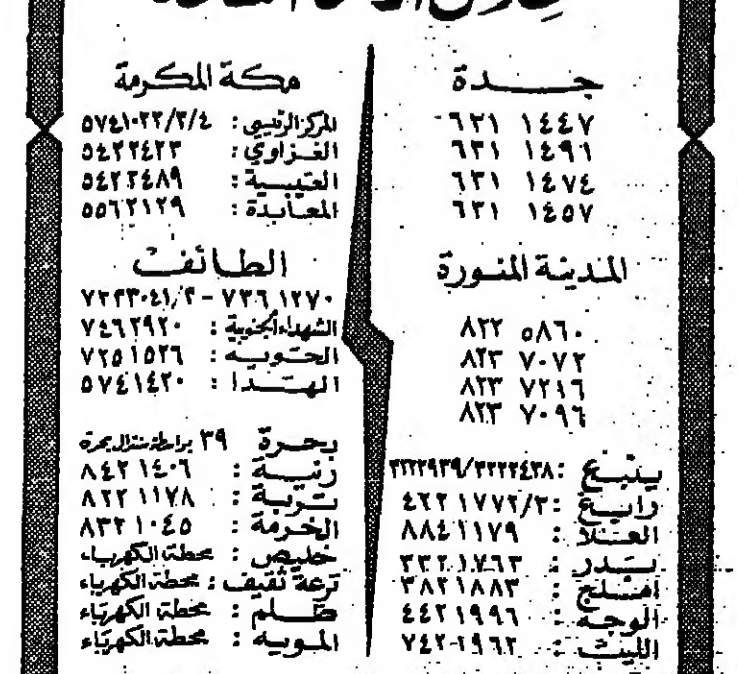 جدة
٦٣١ ١٤٤٧
٦٣١ ١٤٩١
٦٣١ ١٤٧٤
٦٣١ ١٤٥٧
المدينة المنورة
٨٢٢ ٥٨٦٠
٨٢٣ ٧٠٧٢
٨٢٣ ٧٢٤٦
٨٢٣ ٧٠٩٦
ينبع : ٣٢٢٢٤٣٨/٣٢٢٢٩٣٩
رابغ : ٤٢٢١٧٧٢/٣
العلا : ٨٨٤١١٧٩
بدر : ٣٣٢١٧٦٣
املج : ٣٨٢١٨٨٣
الوجه : ٤٤٢١٩٩٦
الليث : ٧٤٢١٩٦٢
مكة المكرمة
المركز الرئيسي : ٥٧٤١٠٢٢/٣/٤
الغزاوي : ٥٤٢٢٤٢٣
العتيبية : ٥٤٢٢٤٨٩
المعابدة : ٥٥٦٢١٢٩
الطائف
٧٣٦١٢٧٠ - ٧٢٣٣٠٤١/٢
الشهداء الجنوبية : ٧٤٦٢٩٢٠
الحوية : ٧٢٥١٥٢٦
الهدا : ٥٧٤١٤٢٠
بحرة ٣٩ بواسطة سنترال بحرة
رنية : ٨٤٢١٤٠٦
تربة : ٨٢٢١١٧٨
الخرمة : ٨٣٢١٠٤٥
خليص : محطة الكهرباء
ترعة ثقيف : محطة الكهرباء
ظلم : محطة الكهرباء
المويه : محطة الكهرباء